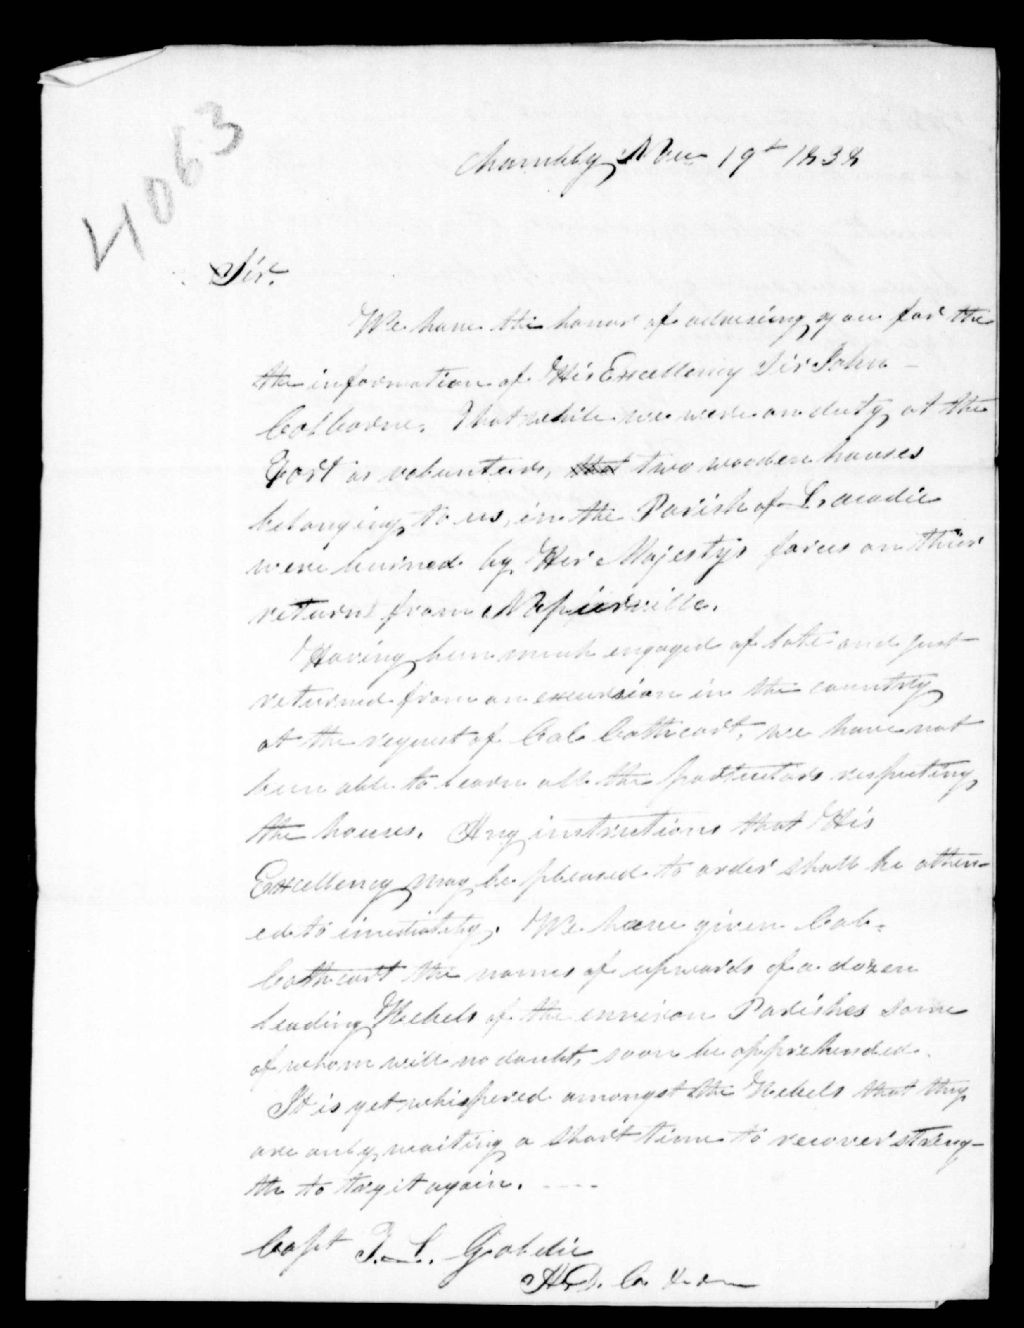 4063
Chambly Nov 19th 1838
Sir.
We have the honor of advising you for the
the information of His Excellency Sir John
Colborne. That while we were on duty at the
Fort as volunteers, that two wooden houses
belonging to us, in the Parish of L,acadie
were burned by Her Majestys forces on thier
return from Napierville.
Having been much engaged of late and just
returned from an excursion in the country
at the request of Col Cathcart, we have not
been able to learn all the particulars respecting
the houses. Any instructions that His
Excellency may be pleased to order shall be atten-
ed to imediatity. We have given Col.
Cathcart the names of upwards of a dozen
leading Rebels of the environ Parishes some
of whom will no doubt, soon be apprehended.
It is yet whispered amongst the Rebels that they
are only waiting a short time to recover streng-
th to try it again.
Capt T. L. Goldie